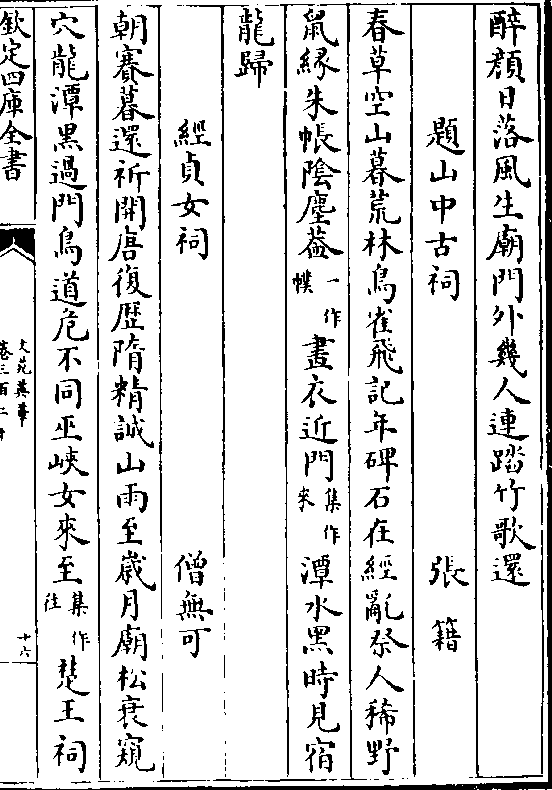 醉顔日落風生廟門外幾人連踏竹歌還
題山中古祠 張籍
春草空山暮荒林鳥雀飛記年碑石在經亂祭人稀野
鼠縁朱帳陰塵葢一作幞畫衣近門集作來潭水黑時見宿
龍歸
經貞女祠 僧無可
朝賽暮還祈開唐復歴隋精誠山雨至歲月廟松衰窺
穴龍潭黑過門鳥道危不同巫峽女來至集作往楚王祠
欽定四庫全書
文苑英華
卷三百二十
十六